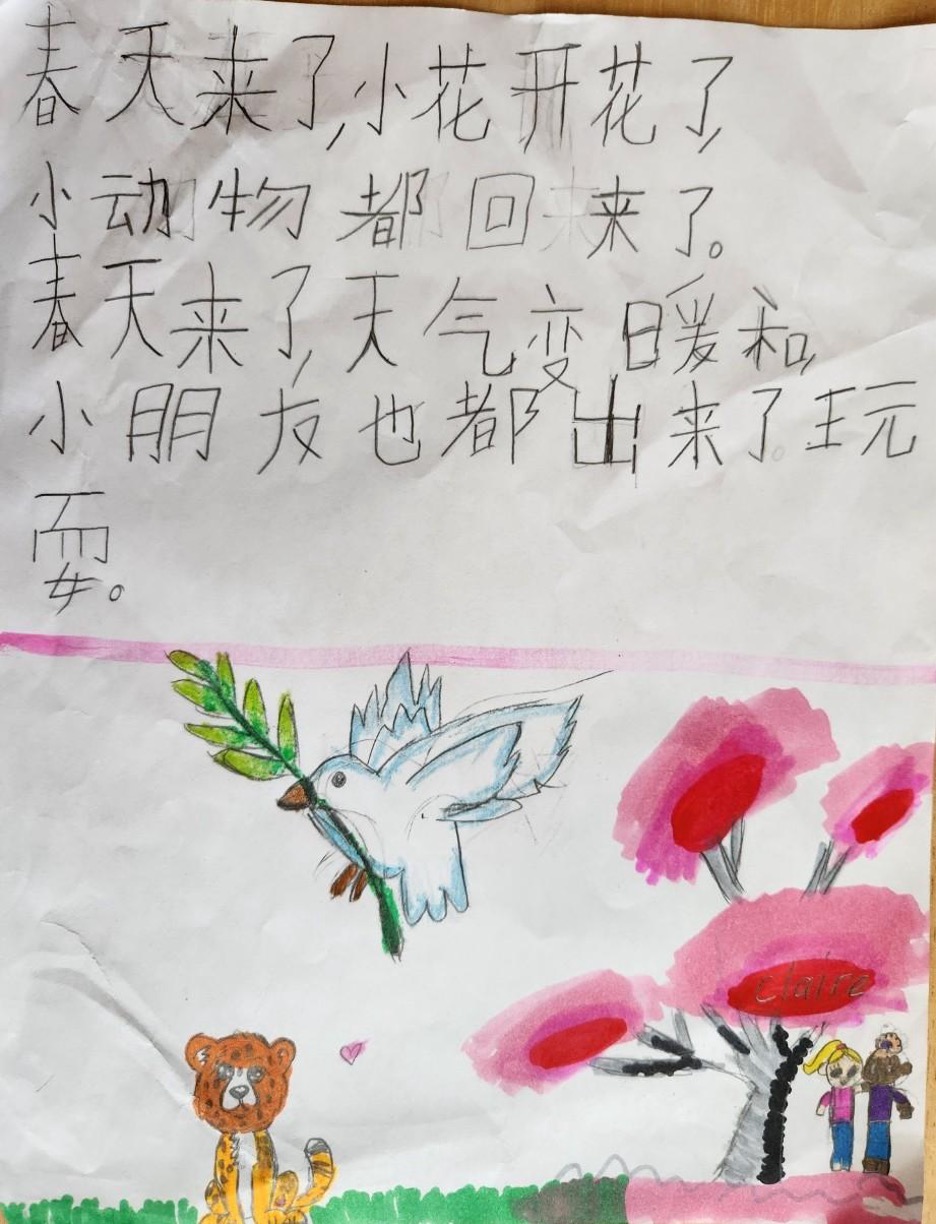 春天来了,小花开花了,
小动物都回来了。
春天来了,天气变暖和,
小朋友也都出来了玩
耍。
claire